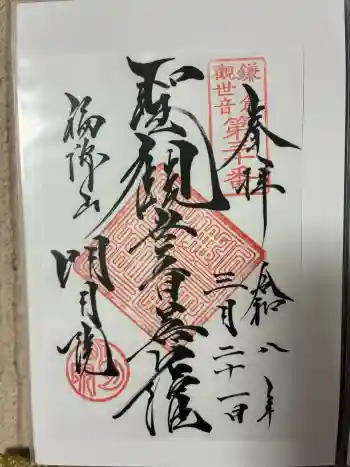 奉拝
鎌倉
観世音
第三十番
令和八年
三月二十一日
聖観世音菩薩
福源山
明月院